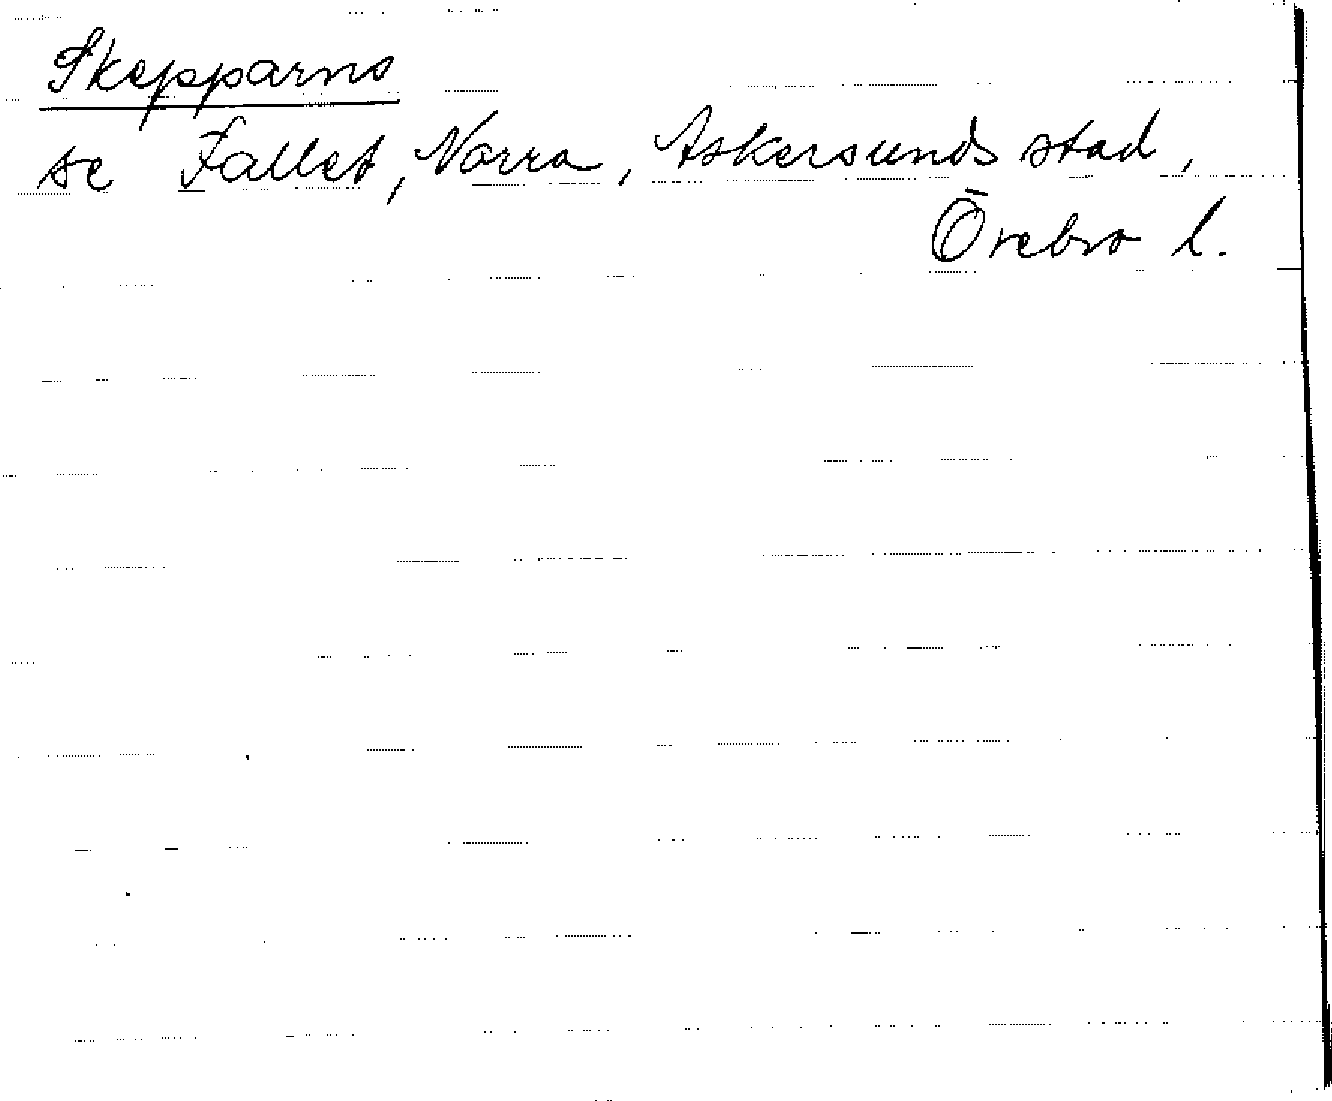 Skepparns
se Fallet, Norra, Askersunds stad,
Örebro l.